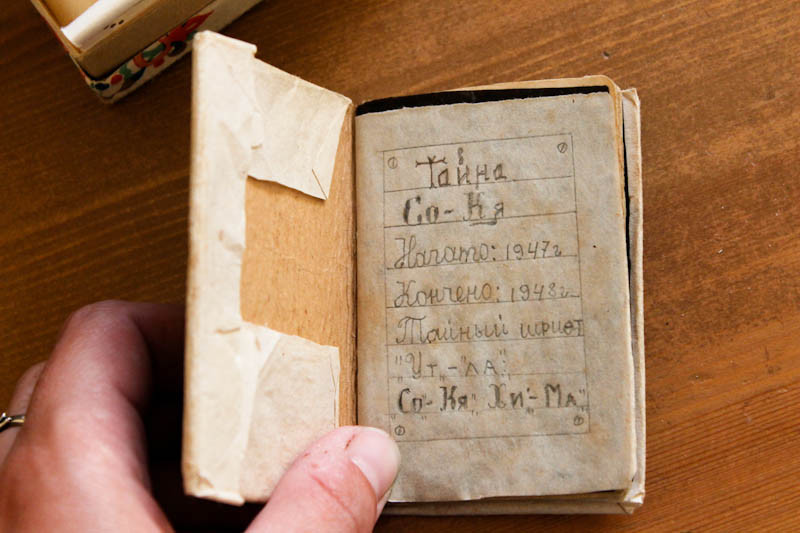 Тайна
Со-Кя
Начато: 1947г
Кончено: 1948г
Тайный шрифт
"Ут,-"ла".
"Со"-"Кя" "Хи"-"Ма"